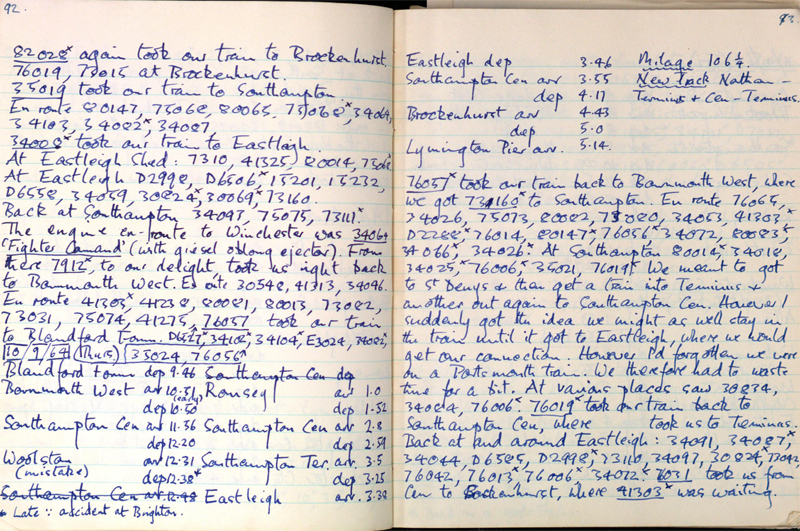 92.
82028ˣ again took our train to Brockenhurst.
76019, 73015 at Brockenhurst.
35019 took our train to Southampton
En route 80147, 75068, 80065, 75068ˣ, 34064,
34103, 34082ˣ, 34087
34008ˣ took our train to Eastleigh.
At Eastleigh Shed: 7310, 41325, 80014,
At Eastleigh D2998, D6506ˣ 15201, 15232,
D6558, 34059, 30824ˣ, 30069ˣ, 73160.
Back at Southampton 34097, 75075, 73111ˣ
The engine en-route to Winchester was 34064
'Fighter Comand' (with giesel oblong ejector). From
there 7912ˣ, to our delight, took us right back
to Bournmouth West. En oute 30548, 41313, 34046.
En route 41303ˣ, 41238, 80081, 80013, 73082,
73031, 75074, 41275, 76057 took our train
to Blandford Forum. 34102ˣ, 34104ˣ, E3024, 34082ˣ,
10/9/64 (Thurs) 35024, 76056ˣ
Blandford Forum dep 9.46 Southampton Cen dep
Bornmouth West arr 10.31 (early) Romsey arr 1.0
dep 10.50 dep 1.52
Southampton Cen arr 11.36 Southampton Cen arr 2.8
dep 12.20 dep 2.59
Woolston arr 12.31 Southampton Ter. arr. 3.5
(mistake) dep 12.38* dep 3.25
Southampton Cen arr 12.48 Eastleigh arr. 3.38
* Late ∵ accident at Brighton.
93.
Eastleigh dep 3.46 Milage 106¼.
Southampton Cen arr 3.55 New Track Nathan -
dep 4.17 Terminus & Cen - Terminus.
Brockenhurst arr 4.43
dep 5.0
Lymington Pier arr. 5.14.
76057ˣ took our train back to Bournmouth West, where
we got 73160ˣ to Southampton. En route 76065,
34026, 75073, 80082, 73080, 34053, 41303ˣ
D2288ˣ, 76014, 80147ˣ, 76056ˣ 34072, 80083ˣ,
34066ˣ, 34026ˣ. At Southampton 80014ˣ, 34018,
34025ˣ, 76006ˣ, 35021, 76019ˣ. We meant to got
to St Denys & then get a train into Terminus &
another out again to Southampton Cen. However I
suddenly got the idea we might as well stay in
the train until it got to Eastleigh, where we would
get our connection. However I'd forgotten we were
on a Portsmouth train. We therefore had to waste
time for a bit. At various places saw 30834,
34084, 76006ˣ. 76019ˣ took our train back to
Southampton Cen, where took us to Terminus.
Back at and around Eastleigh: 34091, 34087ˣ,
34044, D6585, D2998ˣ, 73110, 34097, 30824ˣ, 73042
76042, 76013ˣ, 76006ˣ, 34072ˣ. took us from
Cen to Brockenhurst, where 41303ˣ was waiting.